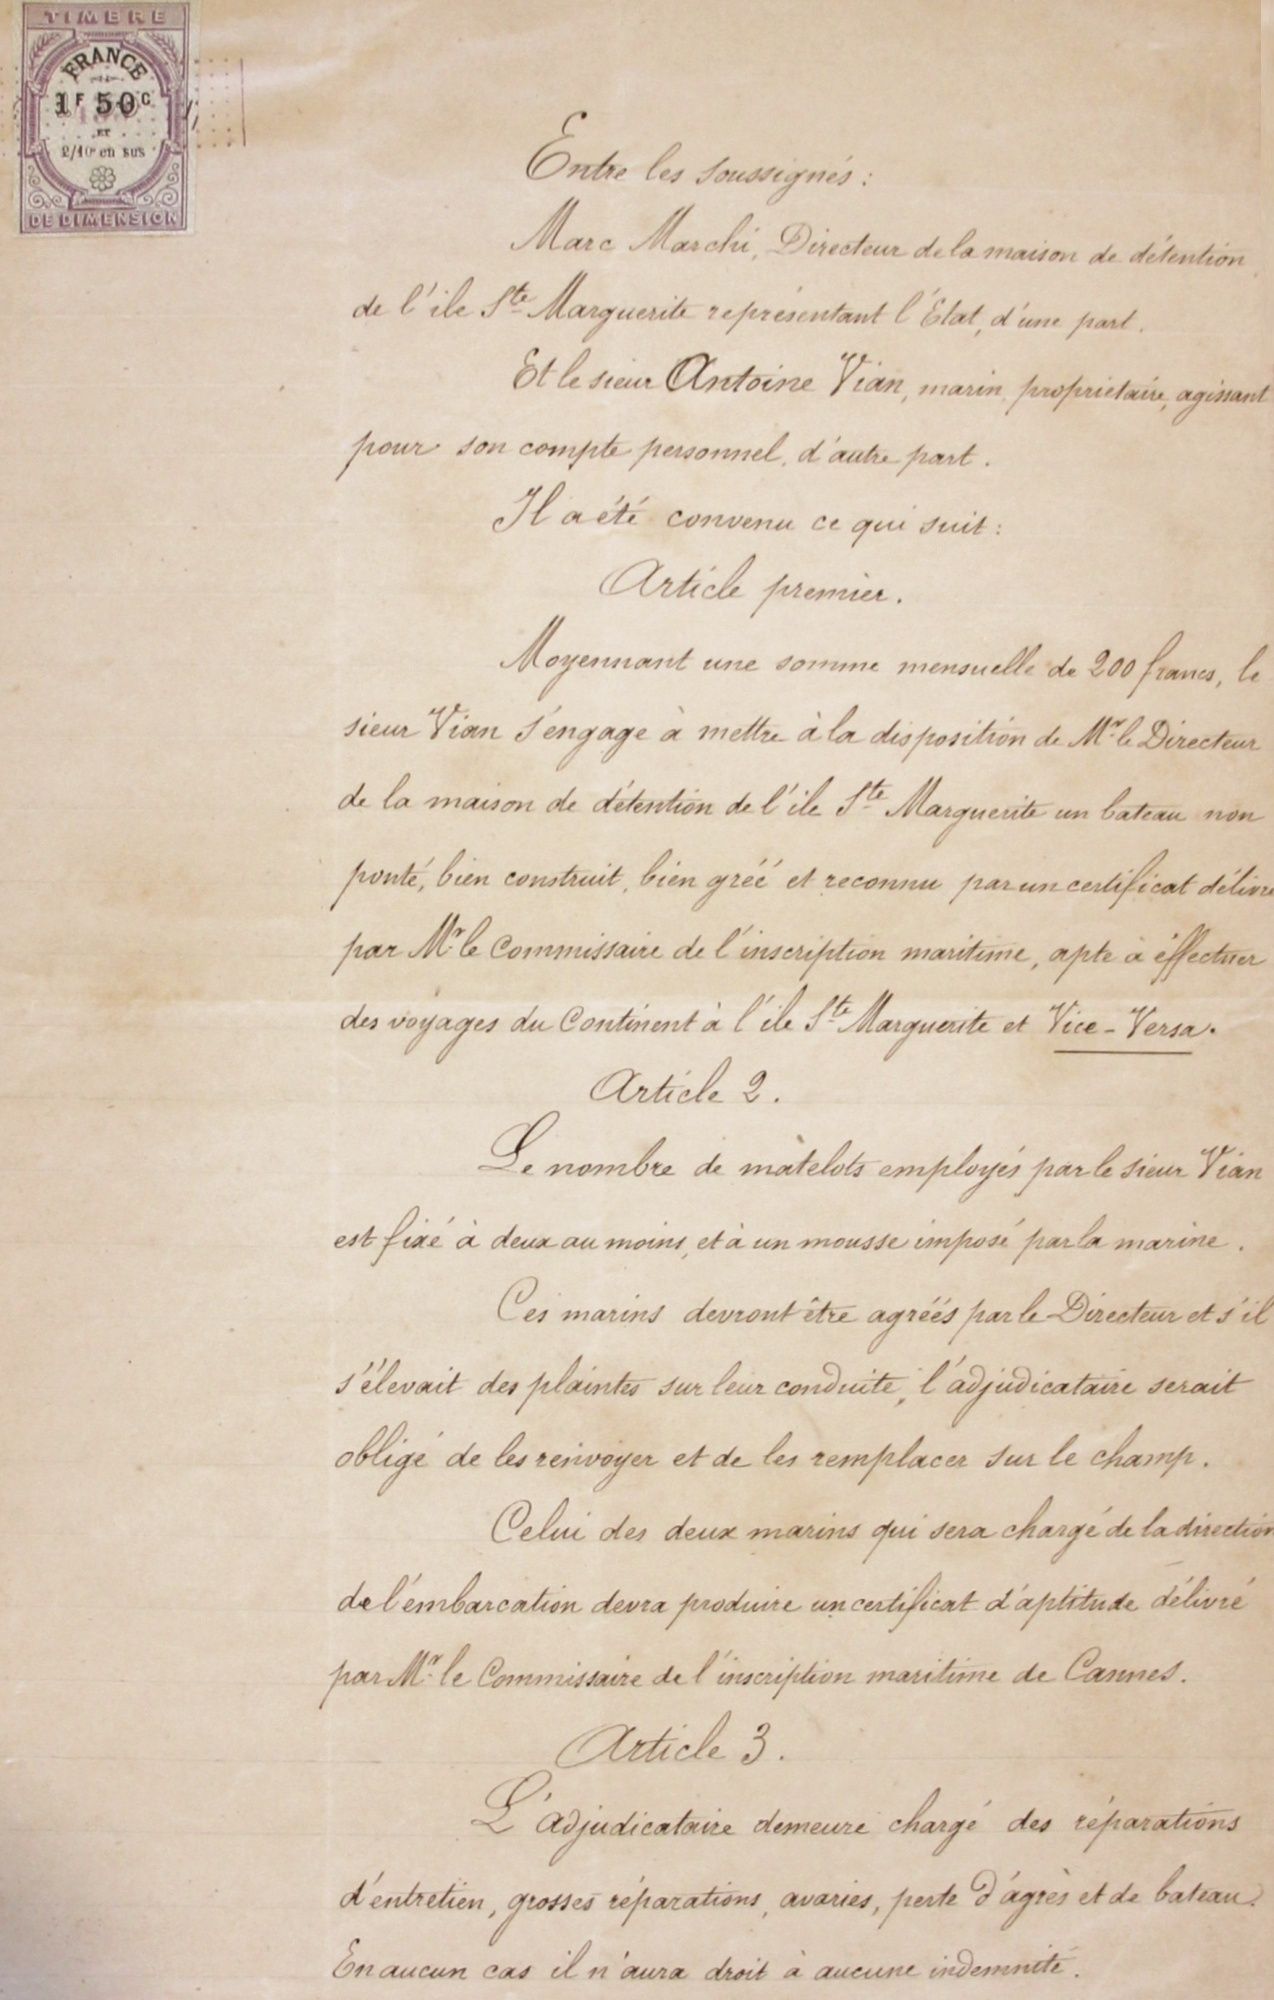 TIMBRE
FRANCE
1F 50C
ET
2/10e en sus
DE DIMENSION
Entre les soussignés :
Marc Marchi, Directeur de la maison de détention
de l'ile Ste Marguerite représentant l'Etat, d'une part.
Et le sieur Antoine Vian, marin, propriétaire, agissant
pour son compte personnel, d'autre part.
Il a été convenu ce qui suit :
Article premier.
Moyennant une somme mensuelle de 200 francs, le
sieur Vian s'engage à mettre à la disposition de Mr le Directeur
de la maison de détention de l'ile Ste Marguerite un bateau non
ponté, bien construit, bien gréé et reconnu par un certificat délivré
par Mr le Commissaire de l'inscription maritime, apte à éffectuer
des voyages du Continent à l'ile Ste Marguerite et Vice-Versa.
Article 2.
Le nombre de matelots employés par le sieur Vian
est fixé à deux au moins, et à un mousse imposé par la marine.
Ces marins devront être agréés par le Directeur et s'il
s'élevait des plaintes sur leur conduite, l'adjudicataire serait
obligé de les renvoyer et de les remplacer sur le champ.
Celui des deux marins qui sera chargé de la direction
de l'embarcation devra produire un certificat d'aptitude délivré
par Mr le Commissaire de l'inscription maritime de Cannes.
Article 3.
L'adjudicataire demeure chargé des réparations
d'entretien, grosses réparations, avaries, perte d'agrès et de bateau.
En aucun cas il n'aura droit à aucune indemnité.